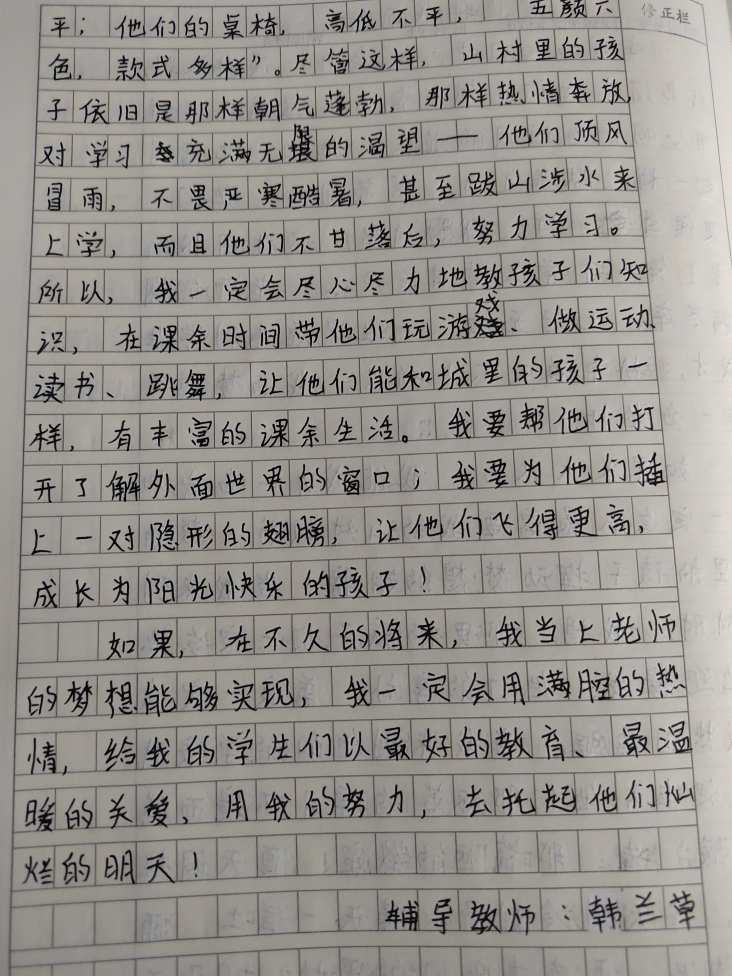 修正栏
平；他们的桌椅，高低不平，五颜六
色，款式多样”。尽管这样，山村里的孩
子依旧是那样朝气蓬勃，那样热情奔放，
对学习充满无限的渴望——他们顶风
冒雨，不畏严寒酷暑，甚至跋山涉水来
上学，而且他们不甘落后，努力学习。
所以，我一定会尽心尽力地教孩子们知
识，在课余时间带他们玩游戏、做运动、
读书、跳舞，让他们能和城里的孩子一
样，有丰富的课余生活。我要帮他们打
开了解外面世界的窗口；我要为他们插
上一对隐形的翅膀，让他们飞得更高，
成长为阳光快乐的孩子！
如果，在不久的将来，我当上老师
的梦想能够实现，我一定会用满腔的热
情，给我的学生们以最好的教育、最温
暖的关爱，用我的努力，去托起他们灿
烂的明天！
辅导教师：韩兰草